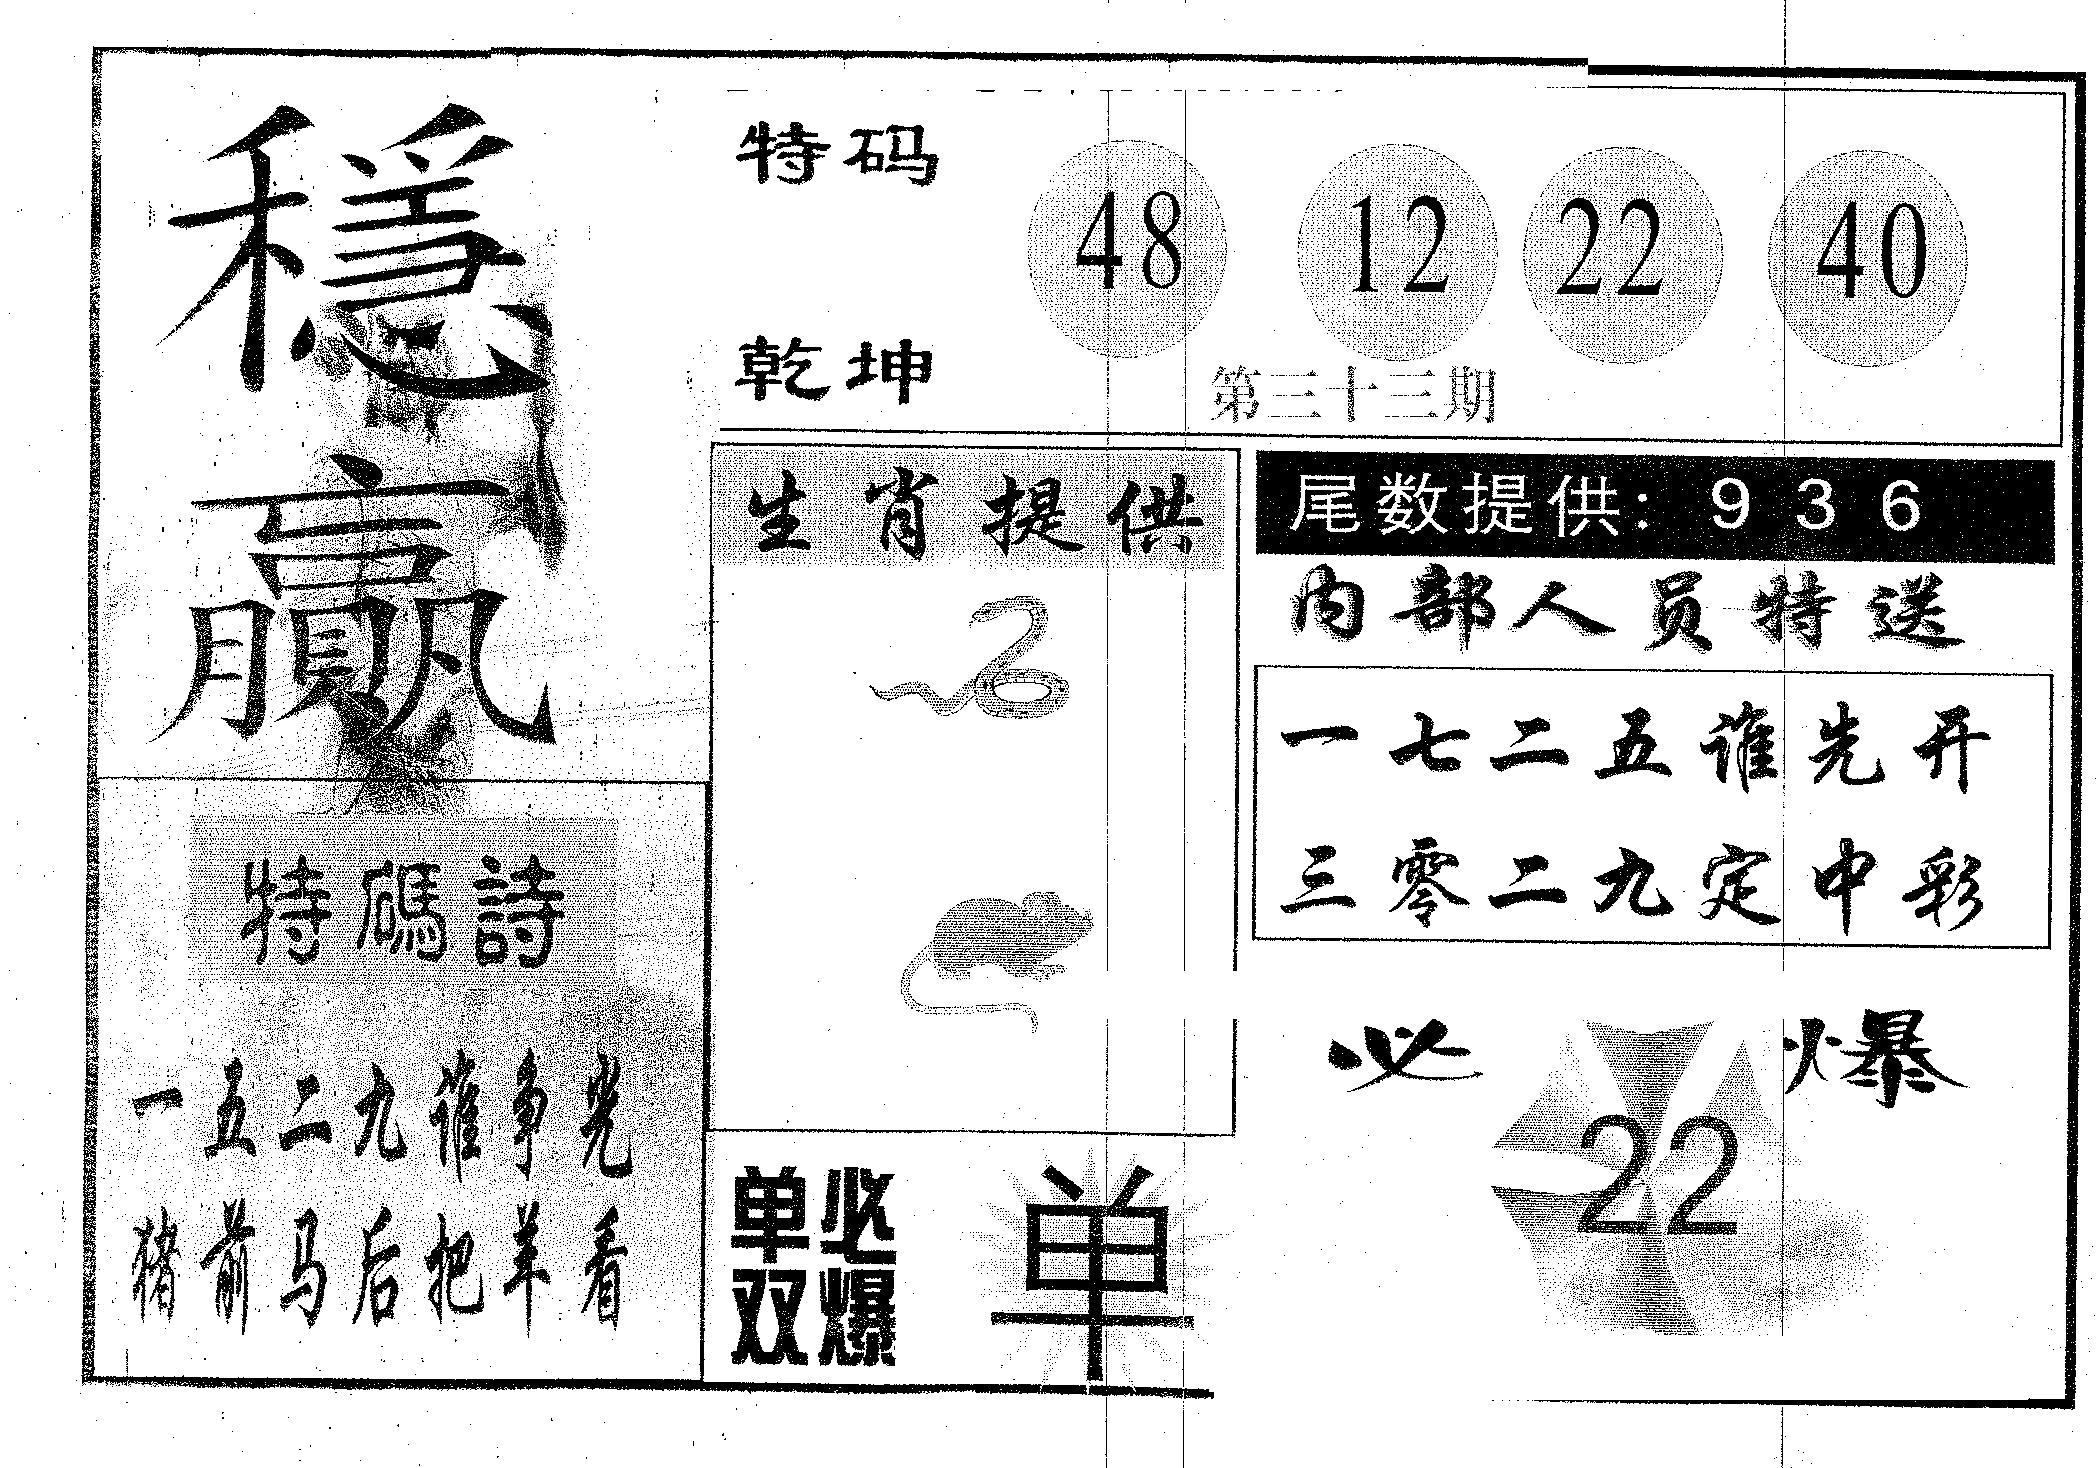 穩
贏
特码
48 12 22 40
乾坤
第三十三期
生肖提供
尾数提供: 9 3 6
内部人员特送
一七二五谁先开
三零二九定中彩
特碼詩
一五二九谁争光
猪前马后把羊看
必爆
22
单双
必爆
单